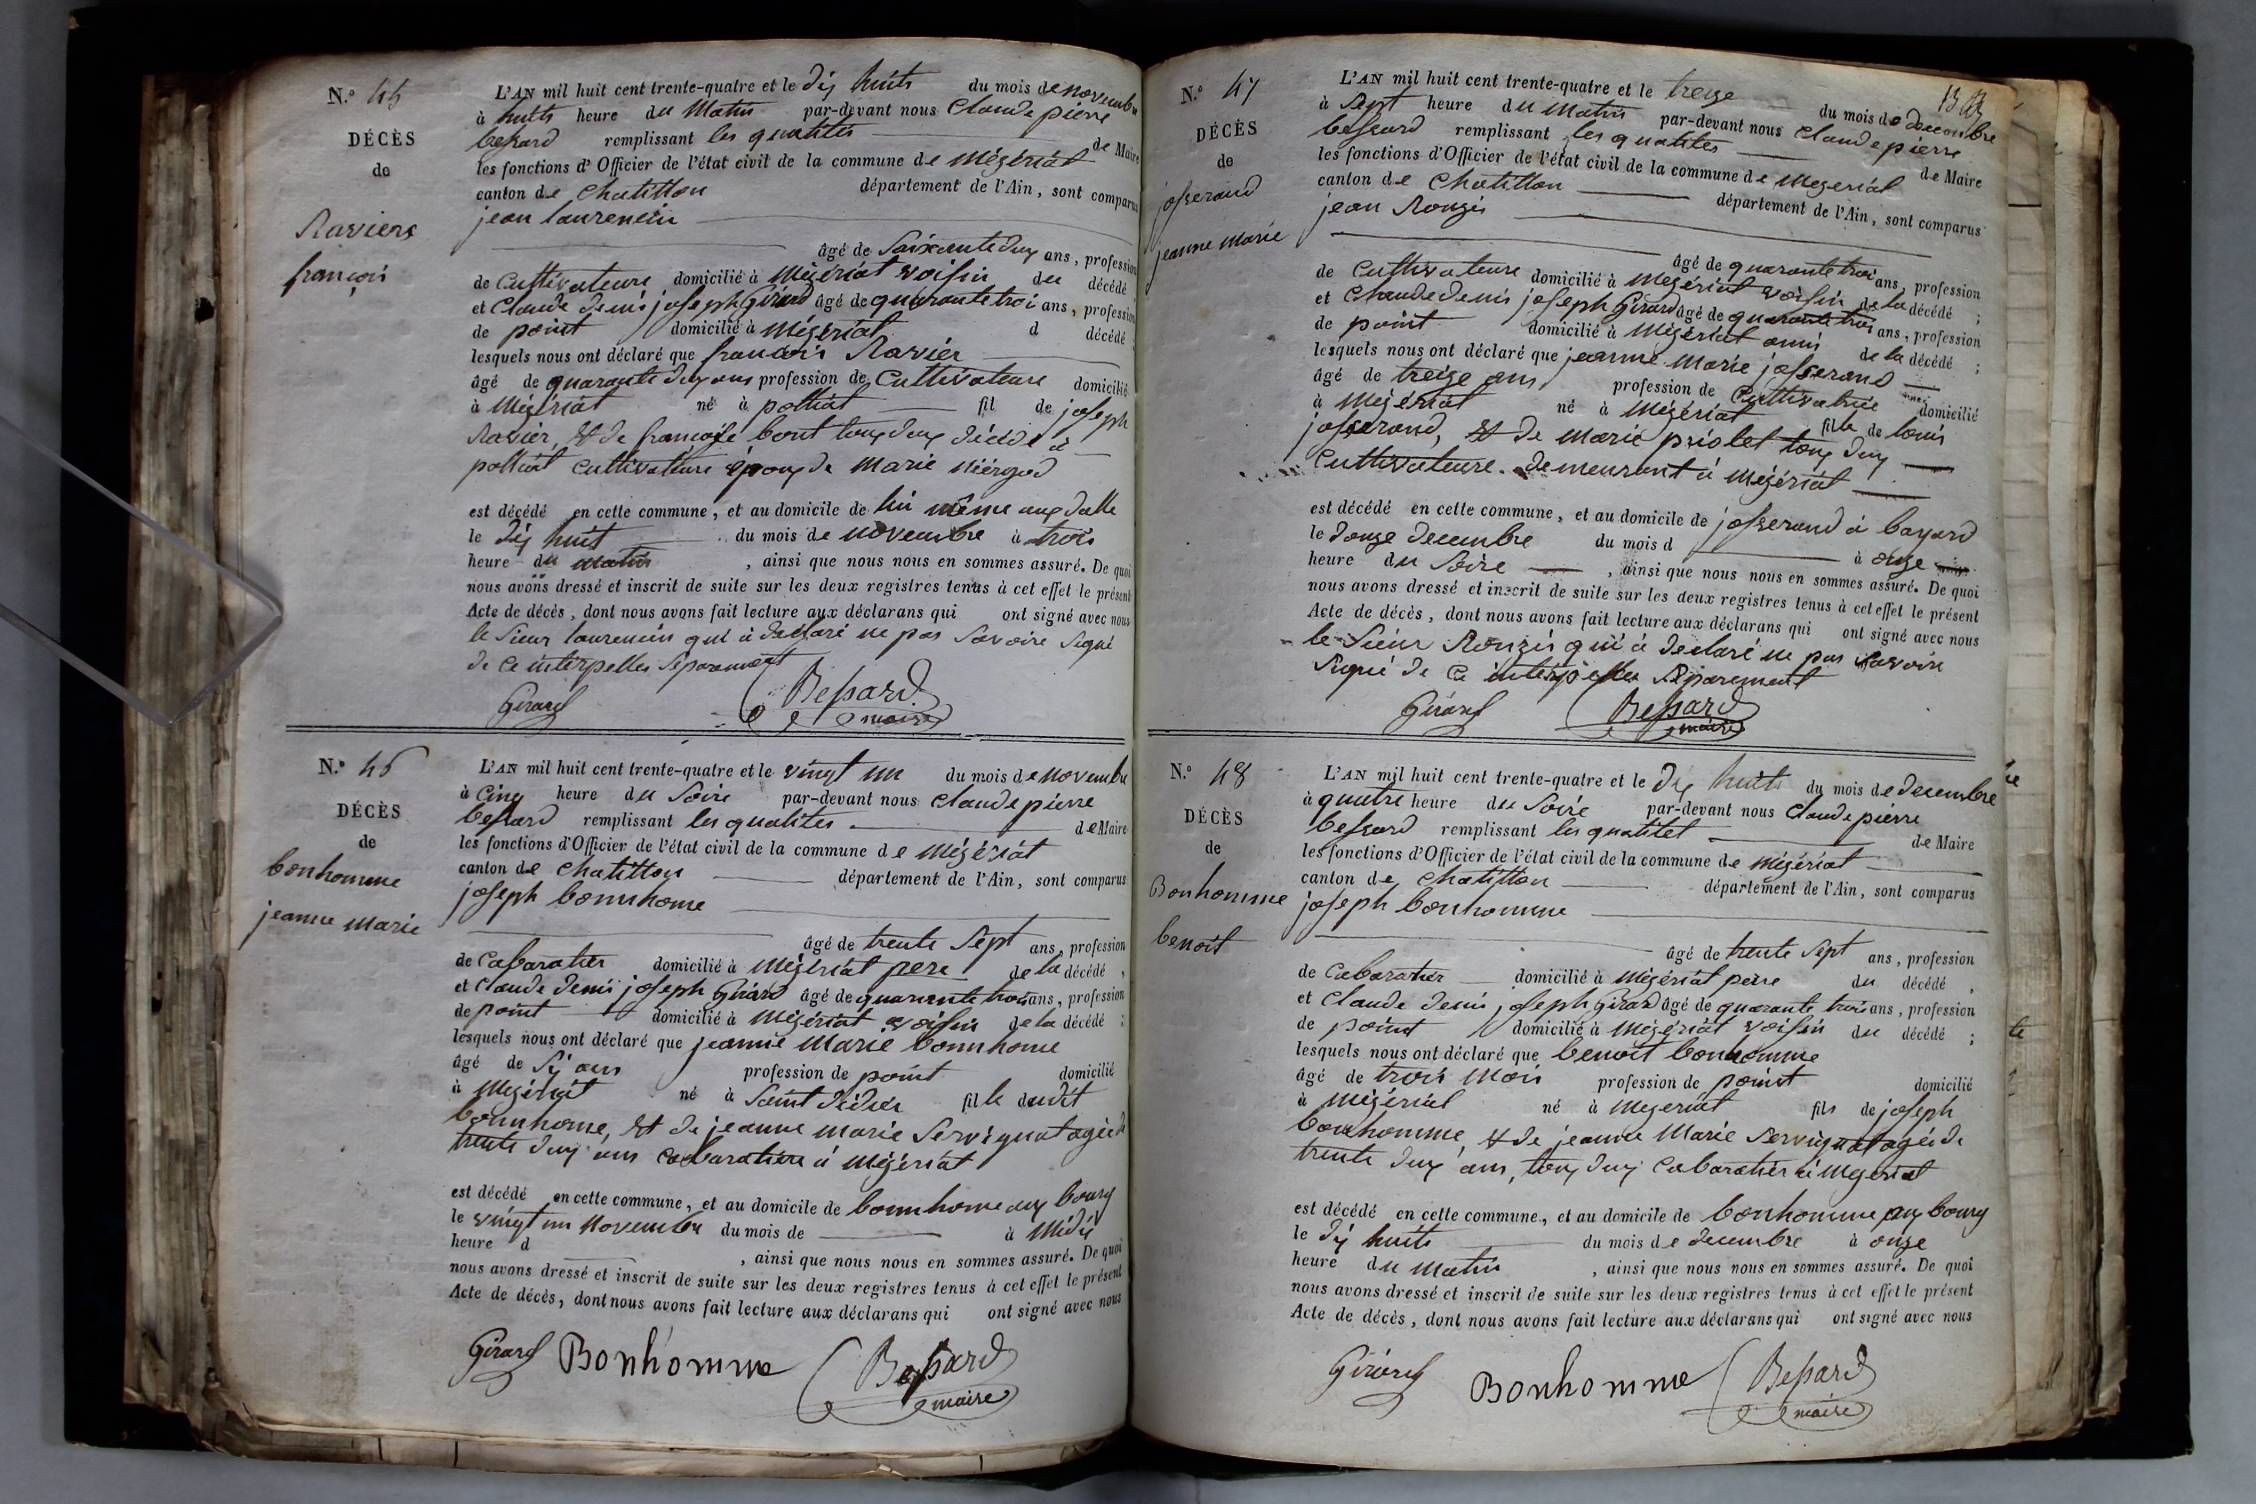 N.° 45
DÉCÈS
de
Raviers
françois
L'AN mil huit cent trente-quatre et le dix huits du mois de novembre
à huits heure du Matin par-devant nous Claude pierre
bessard remplissant les qualités de Maire
les fonctions d'Officier de l'état civil de la commune de Mézériat
canton de Chatillon département de l'Ain, sont comparus
jean laurencin
âgé de Soixante dux ans, profession
de Cultivateure domicilié à Mézériat voisin du décédé
et Claude denis joseph Girard âgé de quarante troi ans, profession
de point domicilié à Mézériat d décédé
lesquels nous ont déclaré que francois Ravier
âgé de quarante dux ans profession de Cultivateure domicilié
à Mézériat né à polliat fil de joseph
Ravier, et de françoise bont tous dux décédé à
polliat cultivateure époux de Marie
est décédé en cette commune, et au domicile de lui même aux
le dix huit du mois de novembre à trois
heure du matin, ainsi que nous nous en sommes assuré. De quoi
nous avons dressé et inscrit de suite sur les deux registres tenus à cet effet le présent
Acte de décès, dont nous avons fait lecture aux déclarans qui ont signé avec nous
le Sieur laurencin qui à declaré ne pas Savoire Signé
de ce interpelles Séparement
Girard Bessard
maire
N.° 46
DÉCÈS
de
bonhomme
jeanne marie
L'AN mil huit cent trente-quatre et le vingt un du mois de novembre
à Cinq heure du Soire par-devant nous Claude pierre
bessard remplissant les qualites de Maire
les fonctions d'Officier de l'état civil de la commune de Mézériat
canton de Chatillon département de l'Ain, sont comparus
joseph bonnhome
âgé de trente Sept ans, profession
de Cabaratier domicilié à Mézériat pere de la décédé,
et Claude denis joseph Girard âgé de quarente trois ans, profession
de point domicilié à Mézériat voisin de la décédé;
lesquels nous ont déclaré que jeanne Marie bonnhome
âgé de Six ans profession de point domicilié
à Mezériat né à Saint didier fille dudit
bonnhome, et de jeanne marie Servignat agée de
trente dux ans Cabaratiere à Mézériat
est décédé en cette commune, et au domicile de bonnhome aux bourg
le vingt un Novembre du mois de à Midis
heure d, ainsi que nous nous en sommes assuré. De quoi
nous avons dressé et inscrit de suite sur les deux registres tenus à cet effet le présent
Acte de décès, dont nous avons fait lecture aux déclarans qui ont signé avec nous
Girard Bonhomme Bessard
maire
13
N.° 47
DÉCÈS
de
josserand
jeanne Marie
L'AN mil huit cent trente-quatre et le treize du mois de decembre
à Sept heure du Matin par-devant nous Claude pierre
bessard remplissant les qualites de Maire
les fonctions d'Officier de l'état civil de la commune de Mezeriat
canton de Chatillon département de l'Ain, sont comparus
jean Rongis
âgé de quarante troi ans, profession
de Cultivateure domicilié à Mézériat voisin de la décédé;
et Claude denis joseph Girard âgé de quarante trois ans, profession
de point domicilié à Mézériat amis de la décédé;
lesquels nous ont déclaré que jeanne Marie josserand
âgé de treize ans profession de Cultivatrice domicilié
à Mézériat né à Mézériat fille de louis
josserand, et de Marie priolet tous dux
Cultivateure demeurant à Mézériat
est décédé en cette commune, et au domicile de josserand à bayard
le douze decembre du mois d à onze
heure du Soire, ainsi que nous nous en sommes assuré. De quoi
nous avons dressé et inscrit de suite sur les deux registres tenus à cet effet le présent
Acte de décès, dont nous avons fait lecture aux déclarans qui ont signé avec nous
le Sieur Rongis qui à declaré ne pas Savoire
Signé de ce interpelles Séparement
Girard Bessard
maire
N.° 48
DÉCÈS
de
Bonhomme
benoit
L'AN mil huit cent trente-quatre et le dix huits du mois de decembre
à quatre heure du Soire par-devant nous Claude pierre
bessard remplissant les qualitet de Maire
les fonctions d'Officier de l'état civil de la commune de Mézériat
canton de Chatillon département de l'Ain, sont comparus
joseph bonhomme
âgé de trente Sept ans, profession
de Cabaratier domicilié à Mézériat pere du décédé,
et Claude denis joseph Girard âgé de quarante trois ans, profession
de point domicilié à Mézériat voisin du décédé;
lesquels nous ont déclaré que benoit bonhomme
âgé de trois Mois profession de point domicilié
à Mézériat né à Mezeriat fils de joseph
bonhomme, et de jeanne Marie Servignat agée de
trente dux ans, tous dux Cabaratier à Mezeriat
est décédé en cette commune, et au domicile de bonhomme aux bourg
le dix huits du mois de decembre à onze
heure du Matin, ainsi que nous nous en sommes assuré. De quoi
nous avons dressé et inscrit de suite sur les deux registres tenus à cet effet le présent
Acte de décès, dont nous avons fait lecture aux déclarans qui ont signé avec nous
Girard Bonhomme Bessard
maire